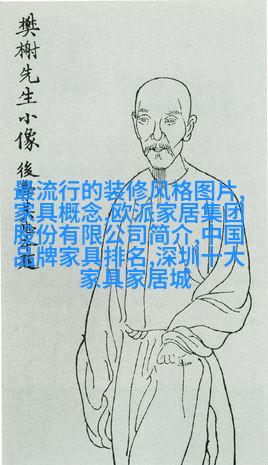 樊榭先生小像
後學
題
最流行的装修风格图片,
家具概念,欧派家居集团
股份有限公司简介,中国
品牌家具排名,深圳十大
家具家居城